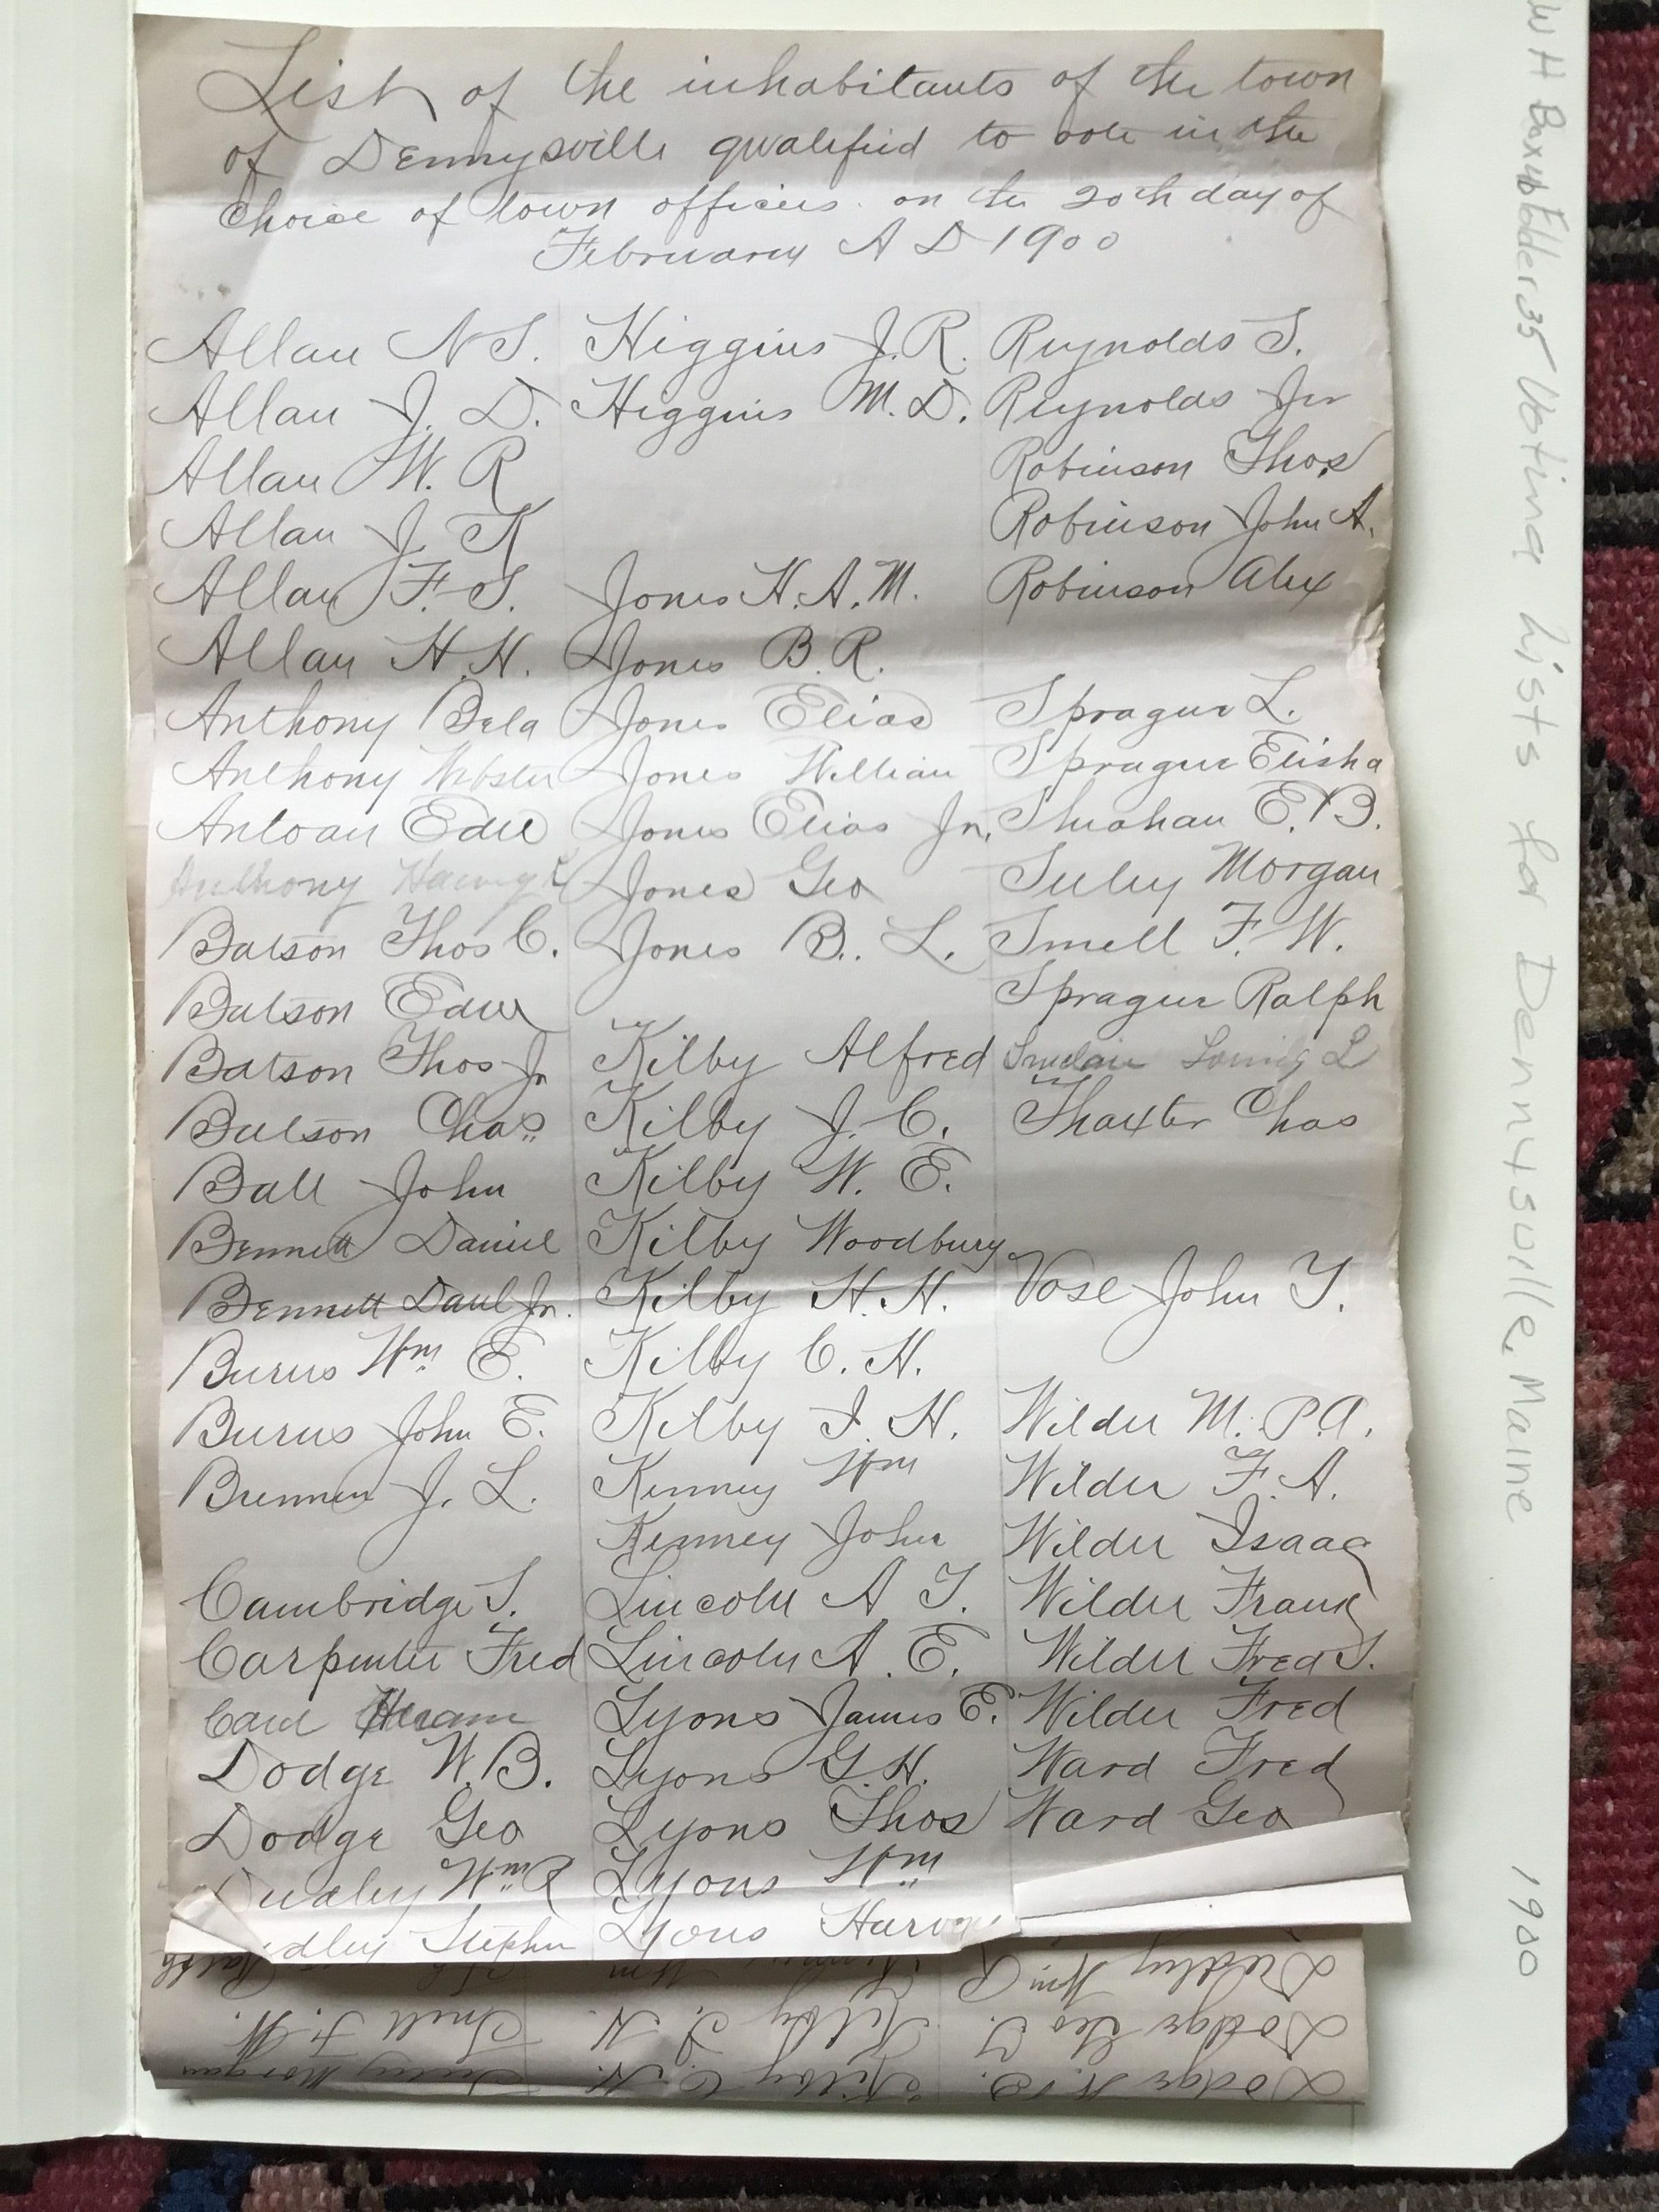 List of the inhabitants of the town
of Dennysville qualified to vote in the
Choice of town officers. on the 20th day of
February A D 1900
Allan N S.
Allan J. D.
Allan W. R
Allan J. K
Allan F. S.
Allan H. H.
Anthony Bela
Anthony Webster
Antoan Edw
Anthony
Batson Thos C.
Batson Edw
Batson Thos Jr
Batson Chas
Ball John
Bennett Daniel
Bennett Danl Jr.
Burns Wm E.
Burns John E.
J. L.
Cambridge S.
Carpenter Fred
Card Hiram
Dodge W. B.
Dodge Geo
Dudley Wm R
dley Stephn
Higgins J. R.
Higgins M. D.
Jones H. A. M.
Jones B. R.
Jones Elias
Jones William
Jones Elias Jr.
Jones Geo
Jones B. L.
Kilby Alfred
Kilby J. C.
Kilby W. E.
Kilby Woodbury
Kilby H. H.
Kilby C. H.
Kilby I. H.
Kenney Wm
Kenney John
Lincoln A T.
Lincoln A. E.
Lyons James E.
Lyons G. H.
Lyons Thos
Lyons Wm
Lyons Harv
Reynolds S.
Reynolds Jr
Robinson Thos
Robinson John A.
Robinson Alex
Sprague L.
Sprague Elisha
Sheahan E. B.
Seeley Morgan
Smell F. W.
Sprague Ralph
L
Thaxter Chas
Vose John T.
Wilder M. P. A.
Wilder F. A.
Wilder Isaac
Wilder Frank
Wilder Fred S.
Wilder Fred
Ward Fred
Ward Geo
Dodge W. B. Kilby C. H. Seeley Morgan
Dodge Geo T. Kilby I. H. Smell F. W.
Dudley Wm R Wm Ralph
W H Box 4b Folder 35 Voting Lists for Dennysville, Maine 1900